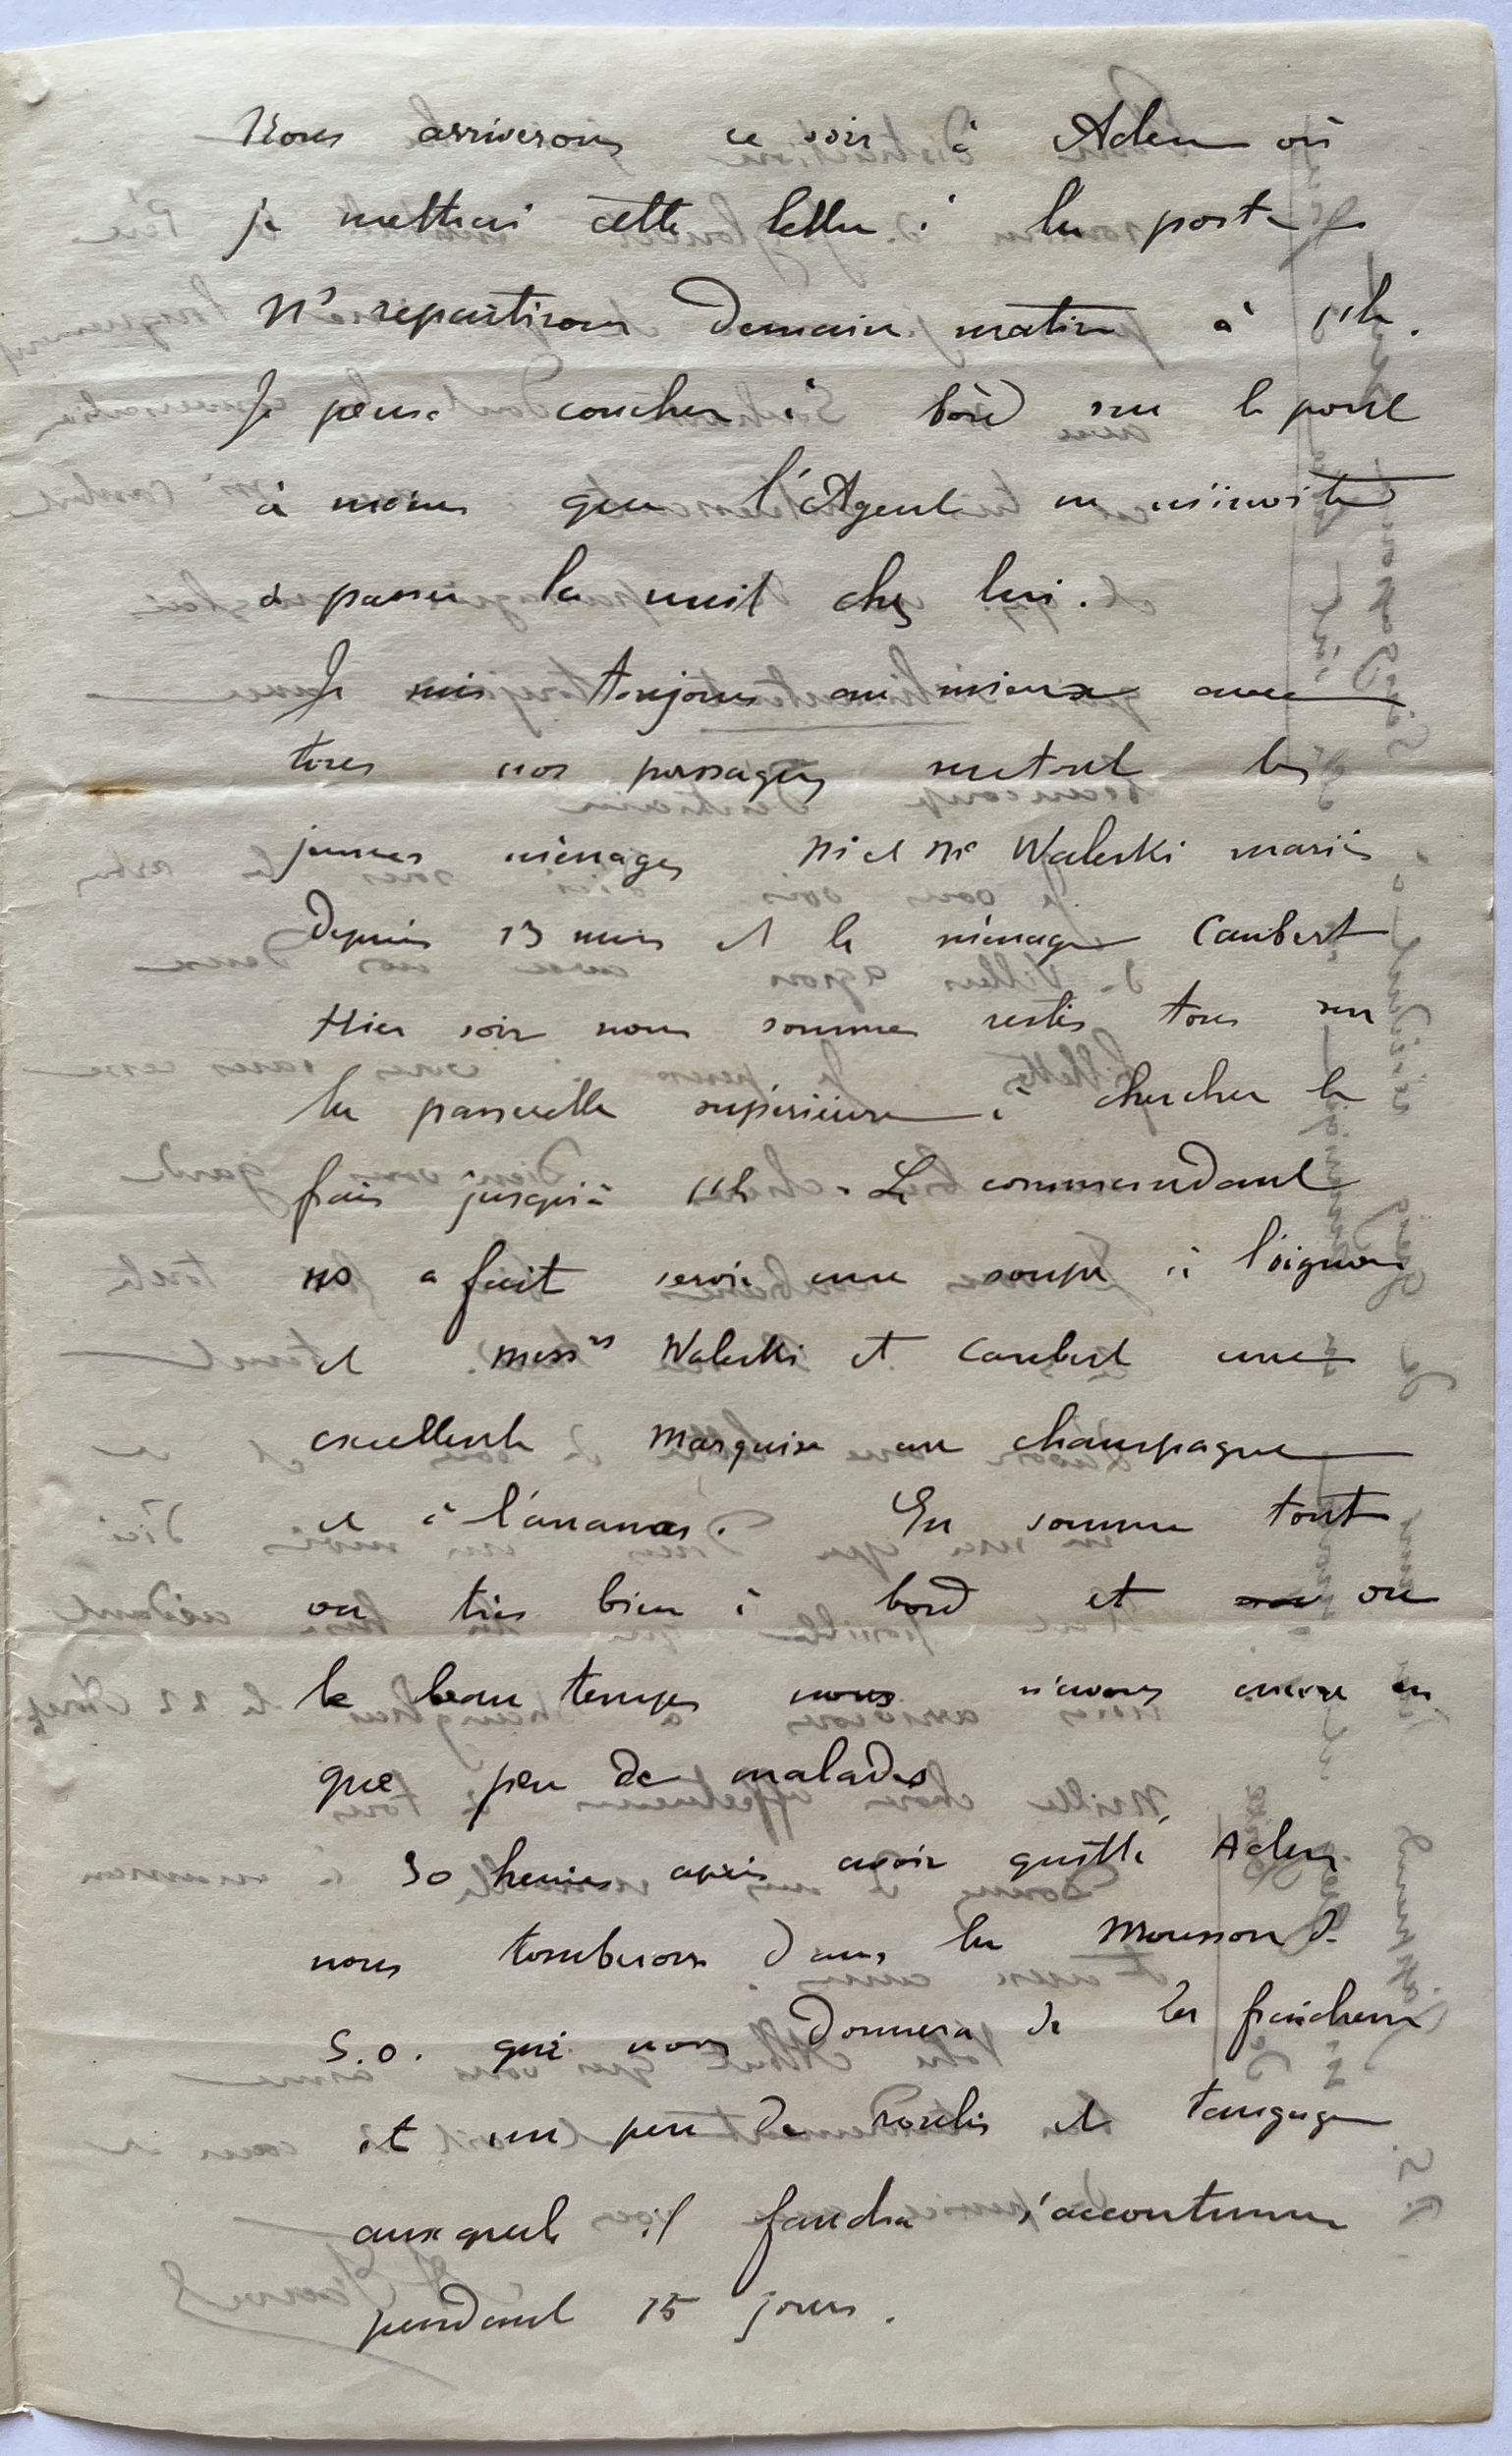 Nous arriverons ce soir à Aden où
je mettrai cette lettre à la poste
Ns repartirons demain matin à 11h.
Je pense coucher à bord sur le pont
à moins que l'Agent ne m'invite
à passer la nuit chez lui.
Je suis toujours au mieux avec
tous nos passagers surtout les
jeunes ménages Mr et Me Waleski mariés
depuis 13 mois et le ménage Caubert
Hier soir nous sommes restés tous sur
la passerelle supérieure à chercher le
frais jusqu'à 11h. Le commandant
ns a fait servir une soupe à l'oignon
et Messrs Waleski et Caubert une
excellente Marquise au champagne
et à l'ananas. En somme tout
va très bien à bord et vu
le beau temps nous n'avons encore eu
que peu de malades
30 heures après avoir quitté Aden
nous tomberons dans la Mousson d.
S.O. qui nous donnera de la fraîcheur
et un peu de roulis et tangage
auxquels il faudra s'accoutumer
pendant 15 jours.